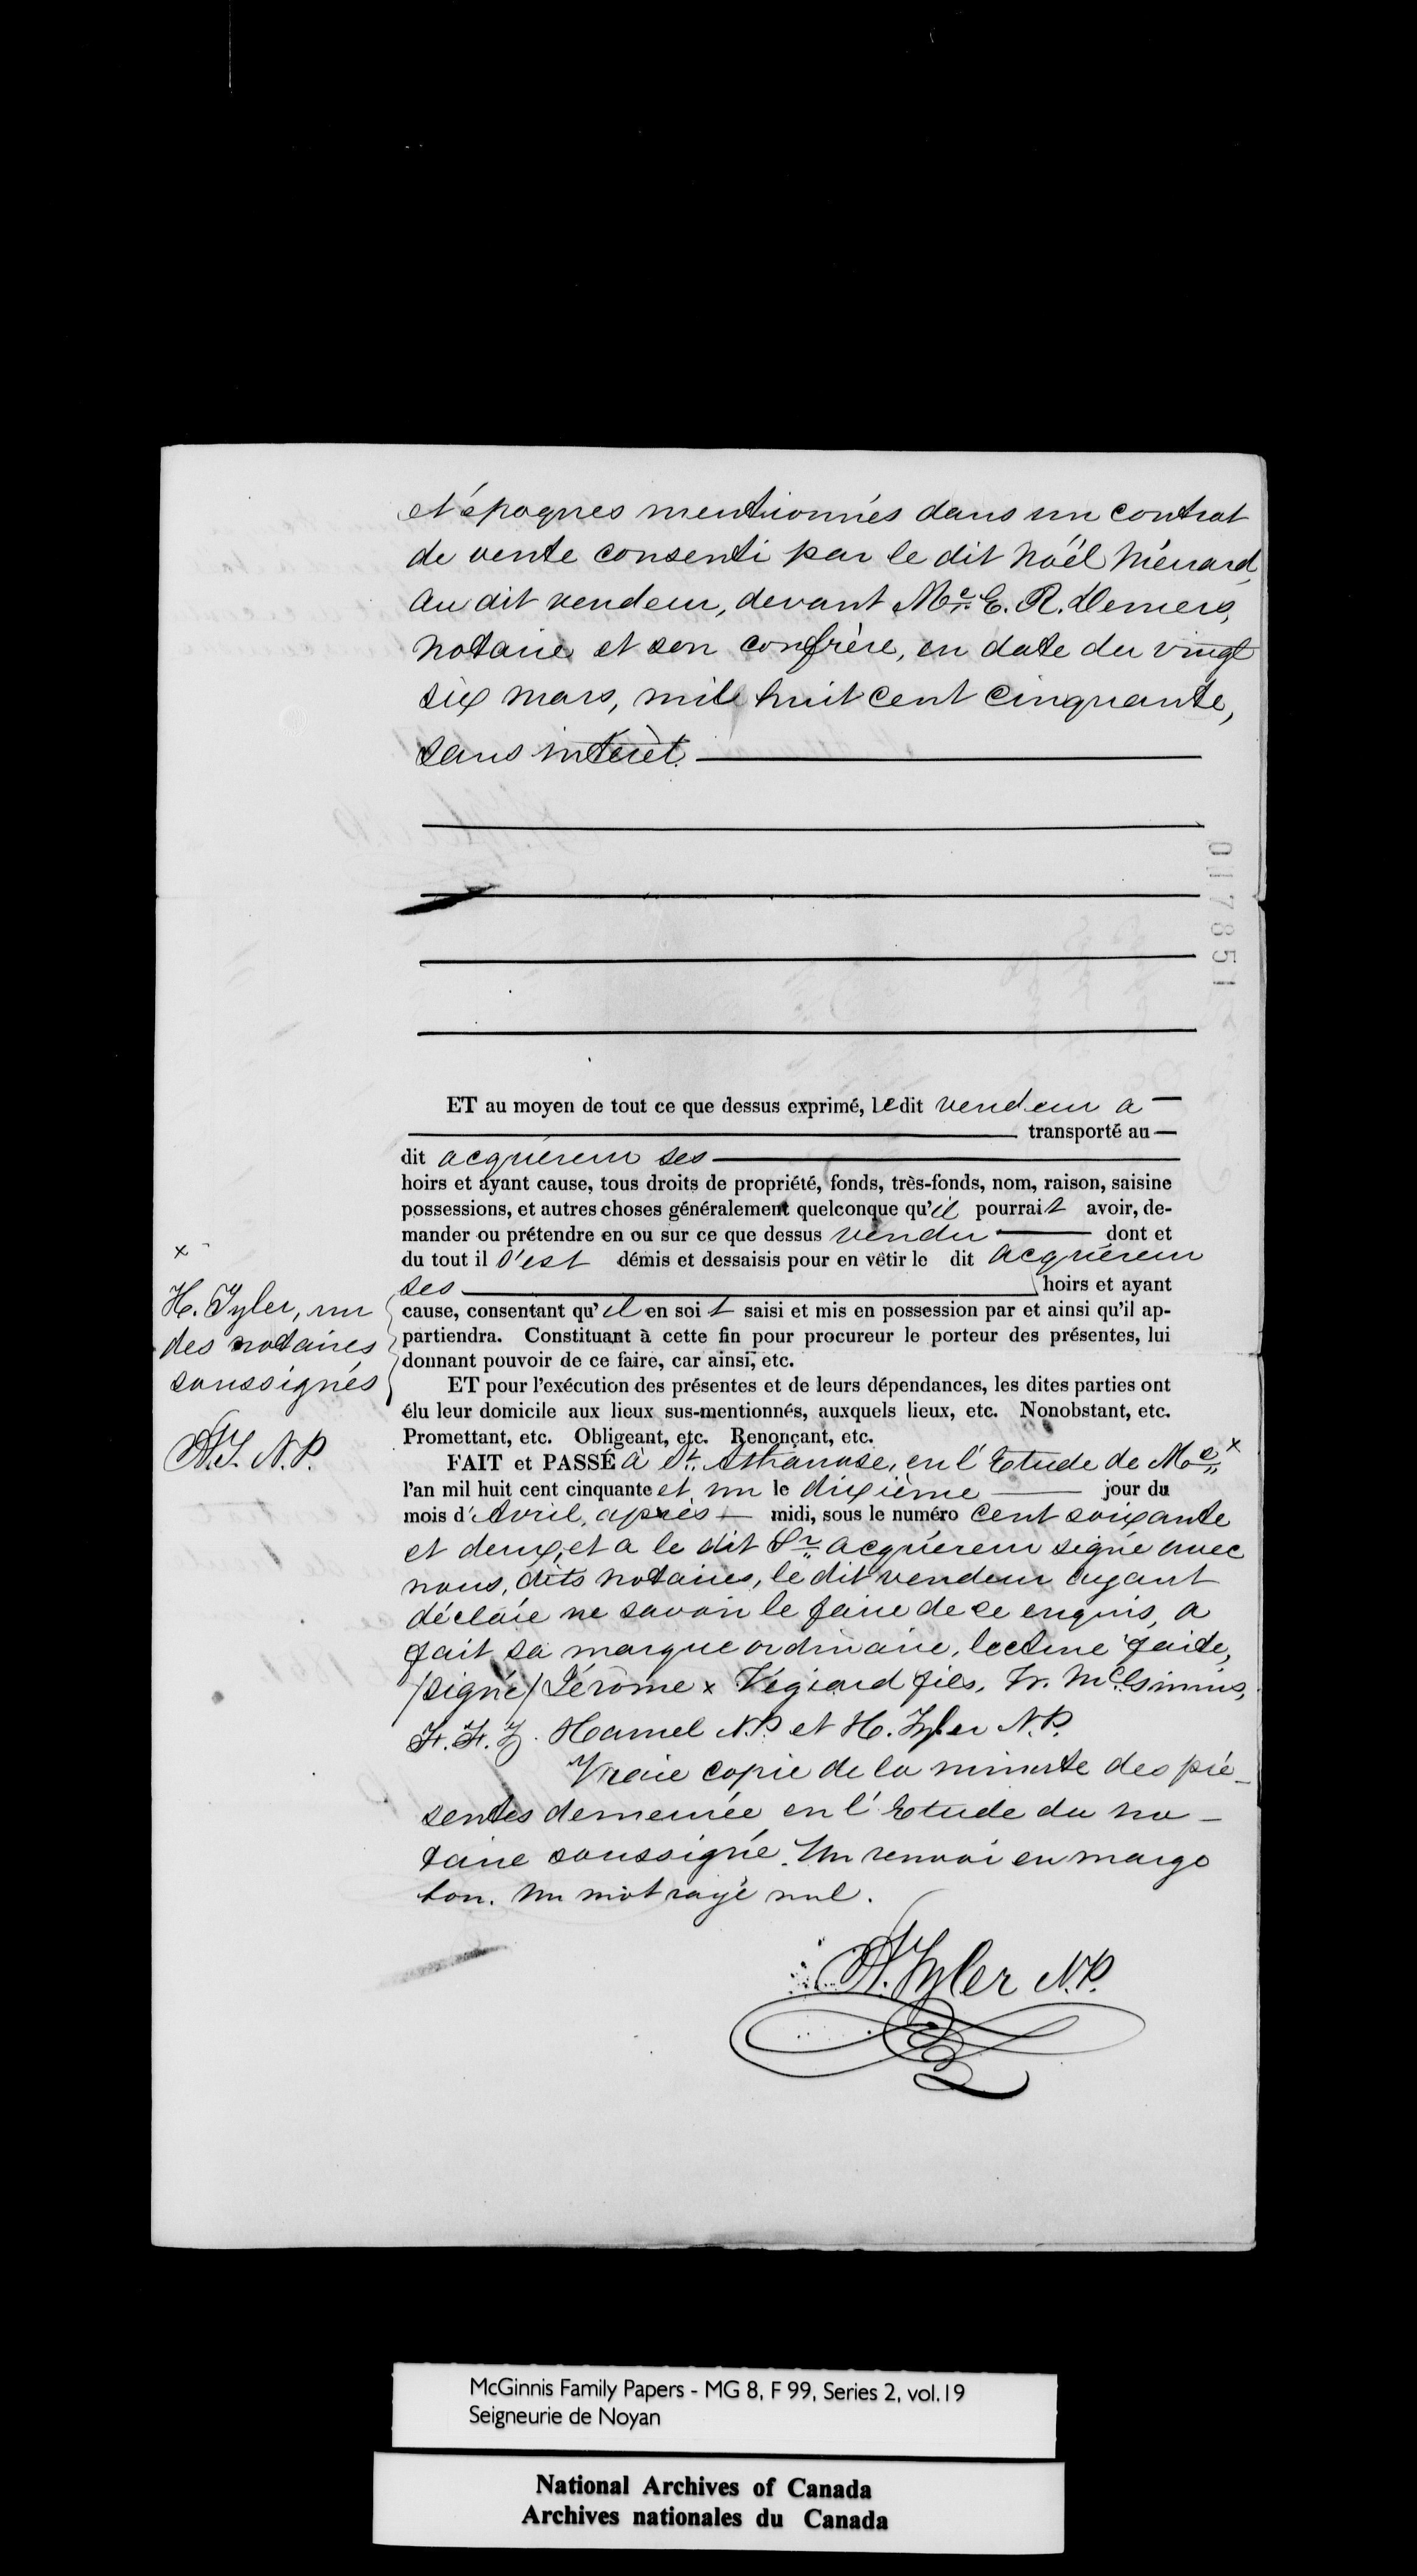 et époques mentionnés dans un contrat
de vente consenti par le dit Noël Ménard,
au dit vendeur, devant Me. E. R. Demers,
notaire et son confrère, en date du vingt
six mars, mil huit cent cinquante,
sans intérêt.
017851
ET au moyen de tout ce que dessus exprimé, Le dit vendeur a
transporté au
dit acquéreur ses
hoirs et ayant cause, tous droits de propriété, fonds, très-fonds, nom, raison, saisine
possessions, et autres choses généralement quelconque qu'il pourrait avoir, de-
mander ou prétendre en ou sur ce que dessus vendu dont et
du tout il s'est démis et dessaisis pour en vêtir le dit acquéreur
ses hoirs et ayant
cause, consentant qu'il en soit saisi et mis en possession par et ainsi qu'il ap-
partiendra. Constituant à cette fin pour procureur le porteur des présentes, lui
donnant pouvoir de ce faire, car ainsi, etc.
ET pour l'exécution des présentes et de leurs dépendances, les dites parties ont
élu leur domicile aux lieux sus-mentionnés, auxquels lieux, etc. Nonobstant, etc.
Promettant, etc. Obligeant, etc. Renonçant, etc.
FAIT et PASSÉ à St. Athanase, en l'Etude de Me x
l'an mil huit cent cinquante et un le dixième jour du
mois d'Avril, après midi, sous le numéro cent soixante
et deux, et a le dit Sr. acquéreur signé avec
nous, dits notaires, le dit vendeur ayant
déclaré ne savoir le faire de ce enquis, a
fait sa marque ordinaire, lecture faite,
/signé/ Jérôme x Végiard fils, W. McGinnis,
F. F. Z. Hamel N.P. et H. Tyler N.P.
Vraie copie de la minute des pré-
sentes demeurée en l'Etude du no-
taire soussigné. Un renvoi en marge
bon. Un mot rayé nul.
H. Tyler N.P.
x
H. Tyler, un
des notaires
soussignés
H.T. N.P.
McGinnis Family Papers - MG 8, F 99, Series 2, vol.19
Seigneurie de Noyan
National Archives of Canada
Archives nationales du Canada